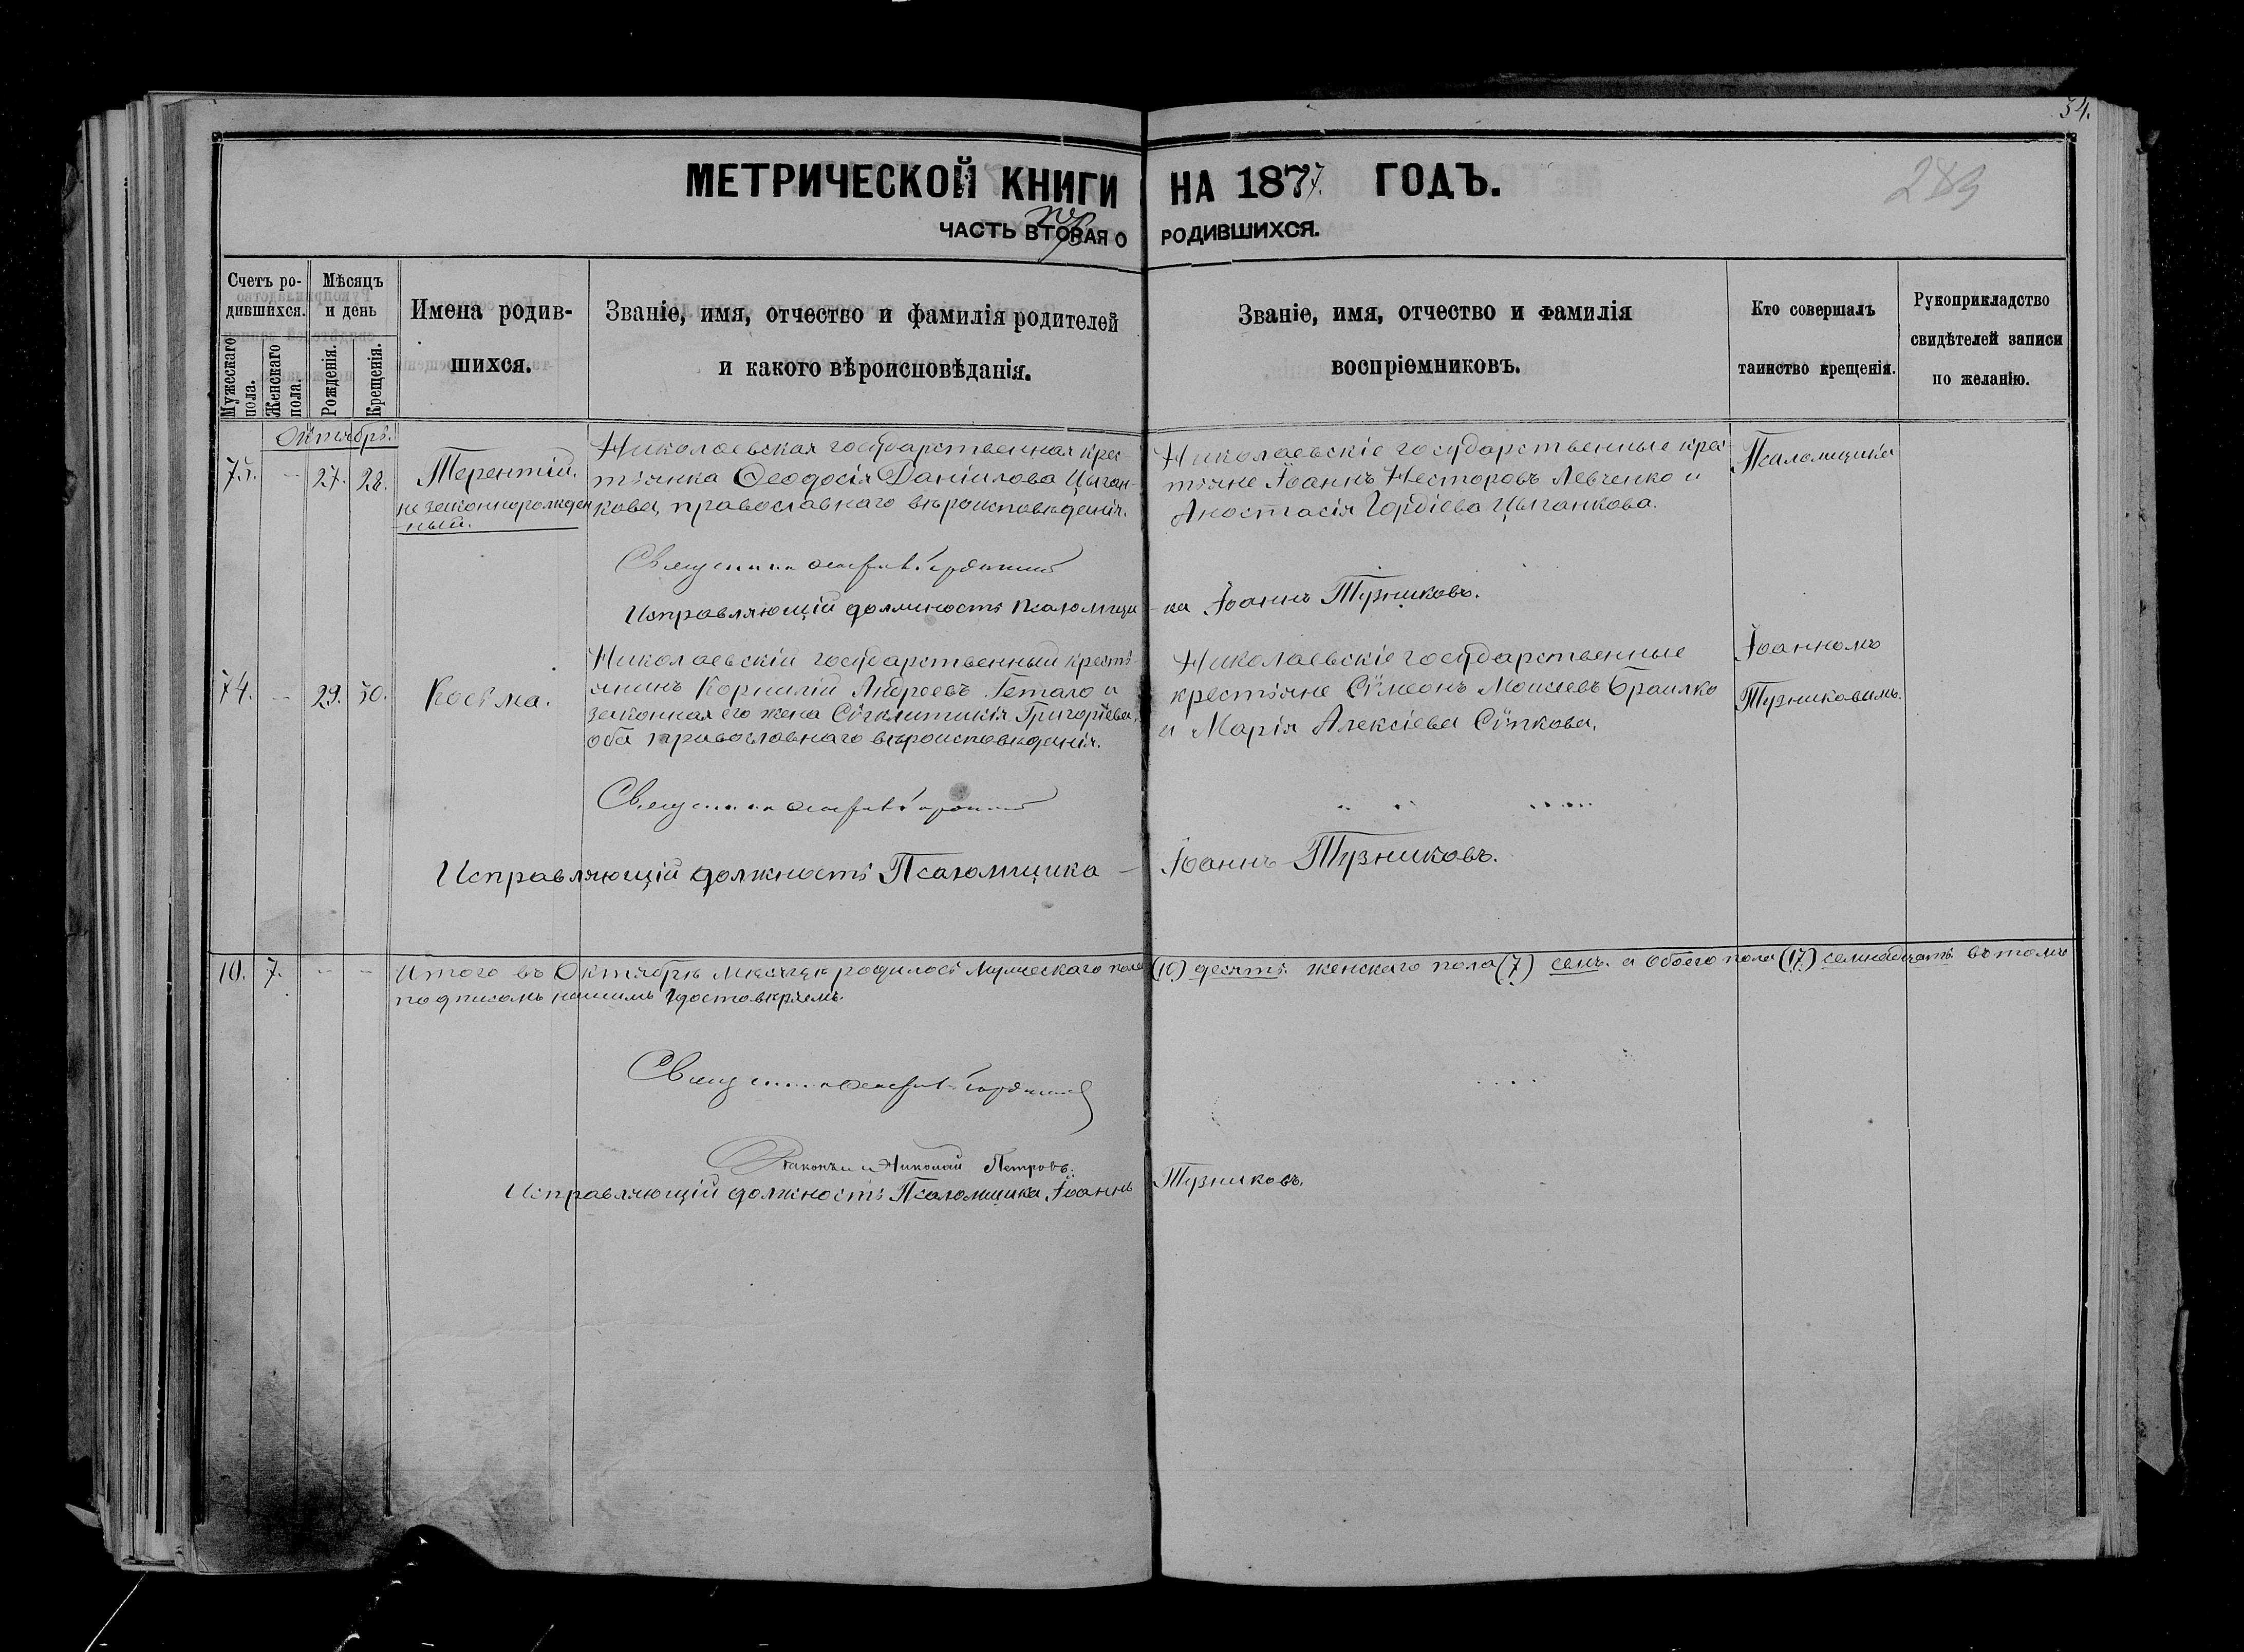 54.
289
МЕТРИЧЕСКОЙ КНИГИ НА 1877. ГОДЪ.
ЧАСТЬ ВТОРАЯ О РОДИВШИХСЯ.
Счетъ ро-
дившихся.
Мужескаго пола.
Женскаго пола.
Мѣсяцъ
и день
Рожденія.
Крещенія.
Имена родив-
шихся.
Званіе, имя, отчество и фамилія родителей
и какого вѣроисповѣданія.
Званіе, имя, отчество и фамилія
воспріемниковъ.
Кто совершалъ
таинство крещенія.
Рукоприкладство
свидѣтелей записи
по желанію.
Октябрь.
73. - 27. 28.
Терентій.
незаконнорожден
-ный.
Николаевская государственная крес-
тьянка Ѳеодосія Даніилова Цыган-
кова, православнаго вѣроисповѣданія.
Николаевскіе государственные крес-
тьяне Іоаннъ Несторовъ Левченко и
Анастасія Гордіева Цыганкова.
Псаломщика
Исправляющій должность Псаломщи-ка Іоаннъ Тузниковъ.
74. - 29. 30.
Косьма.
Николаевскій государственный кресть-
янинъ Корнилій Андреевъ Гетало и
законная его жена Сѵгклитикія Григоріева,
оба православнаго вѣроисповѣданія.
Николаевскіе государственные
крестьяне Сѵмеонъ Моисеевъ Браилко
и Марія Алексіева Сѵпкова.
Іоанномъ
Тузниковымъ.
Исправляющій должность Псаломщика - Іоаннъ Тузниковъ.
10. 7. - -
Итого въ Октябрѣ мѣсяцѣ родилось Мужескаго пола (10) десять. женскаго пола (7) семь. а обоего пола (17) семнадцать въ томъ
подписомъ нашимъ удостовѣряемъ.
Діаконъ Николай Петровъ.
Исправляющій должность Псаломщика Іоаннъ Тузниковъ.